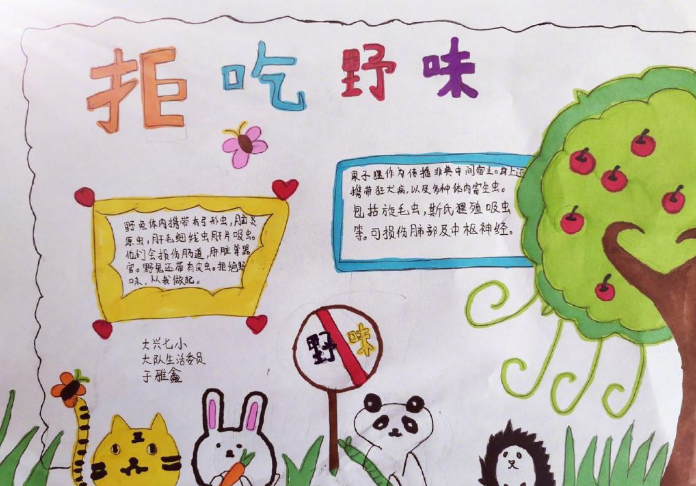 拒吃野味
果子狸作为传播非典中间宿主。身上还
携带狂犬病,以及多种体内寄生虫。
包括旋毛虫,斯氏狸殖吸虫
等。可损伤肺部及中枢神经。
野兔体内携带有弓形虫,脑炎
原虫,肝毛细线虫肝片吸虫。
他们会损伤肠道,肝脏等器
官。野兔还带有皮虫。拒绝野
味,从我做起。
大兴七小
大队生活委员
于雅鑫
野味